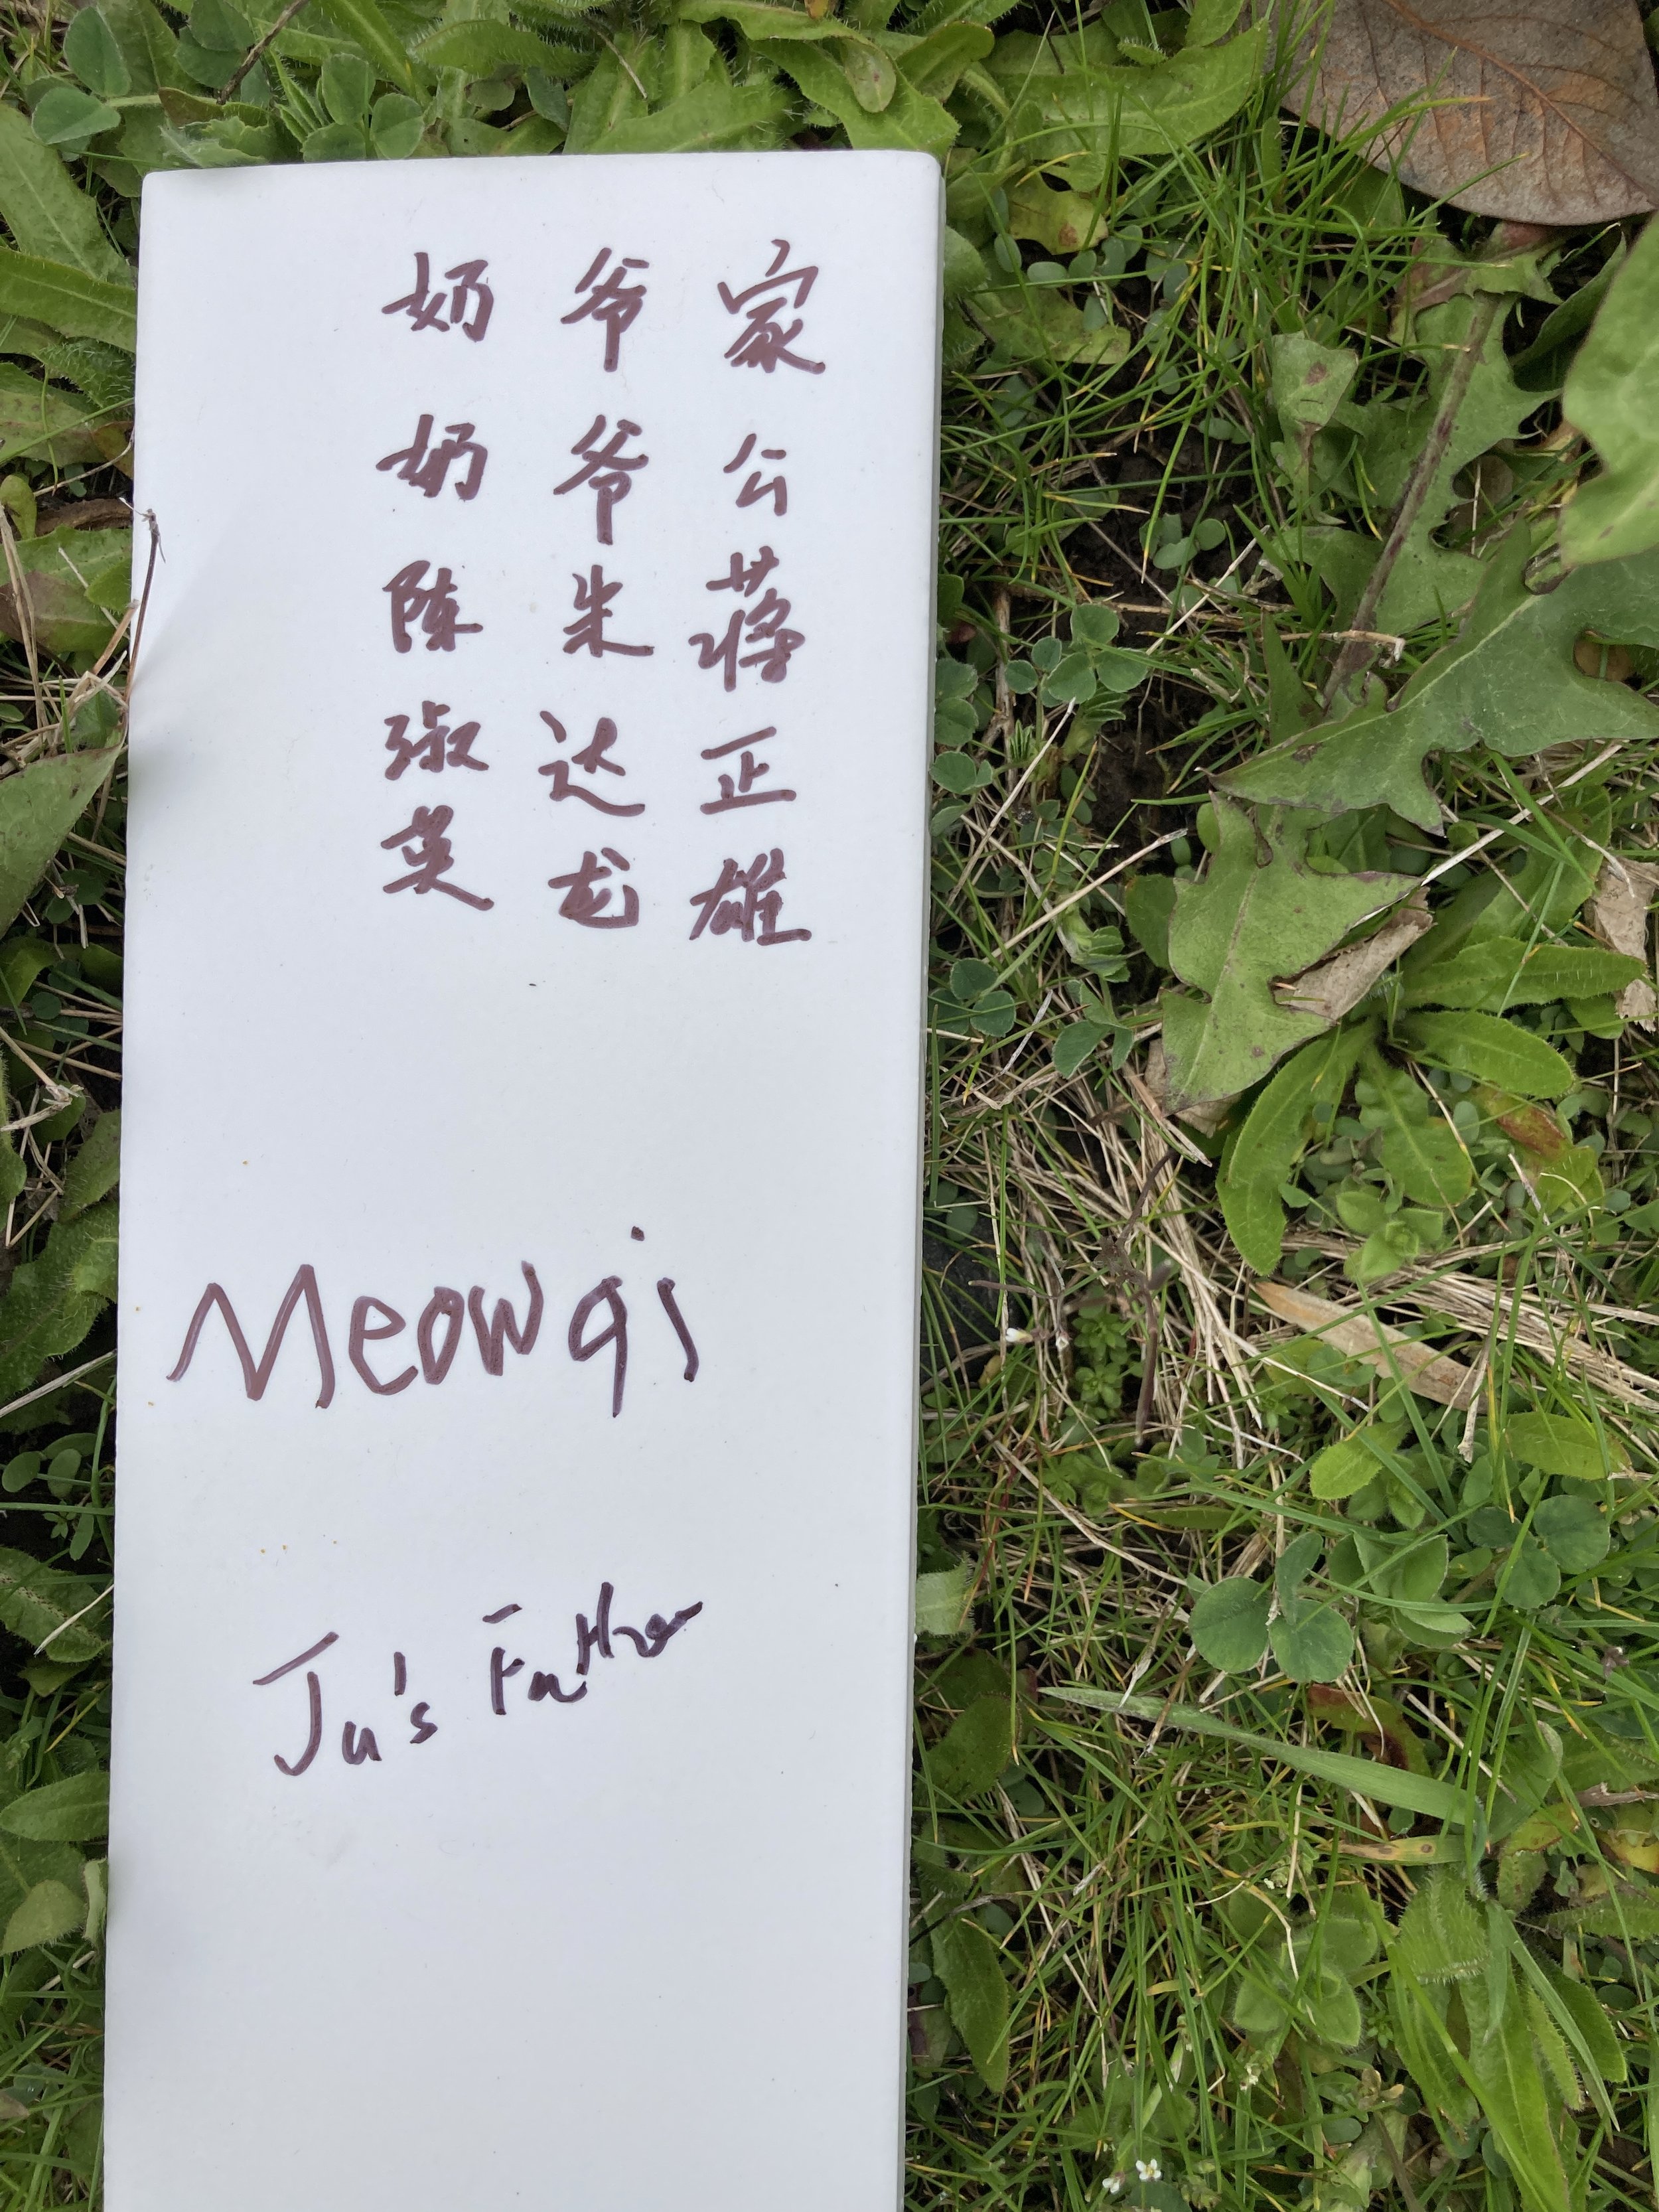 家公蒋正雄
爷爷朱达龙
奶奶陈淑英
Meowqi
Ju's Father